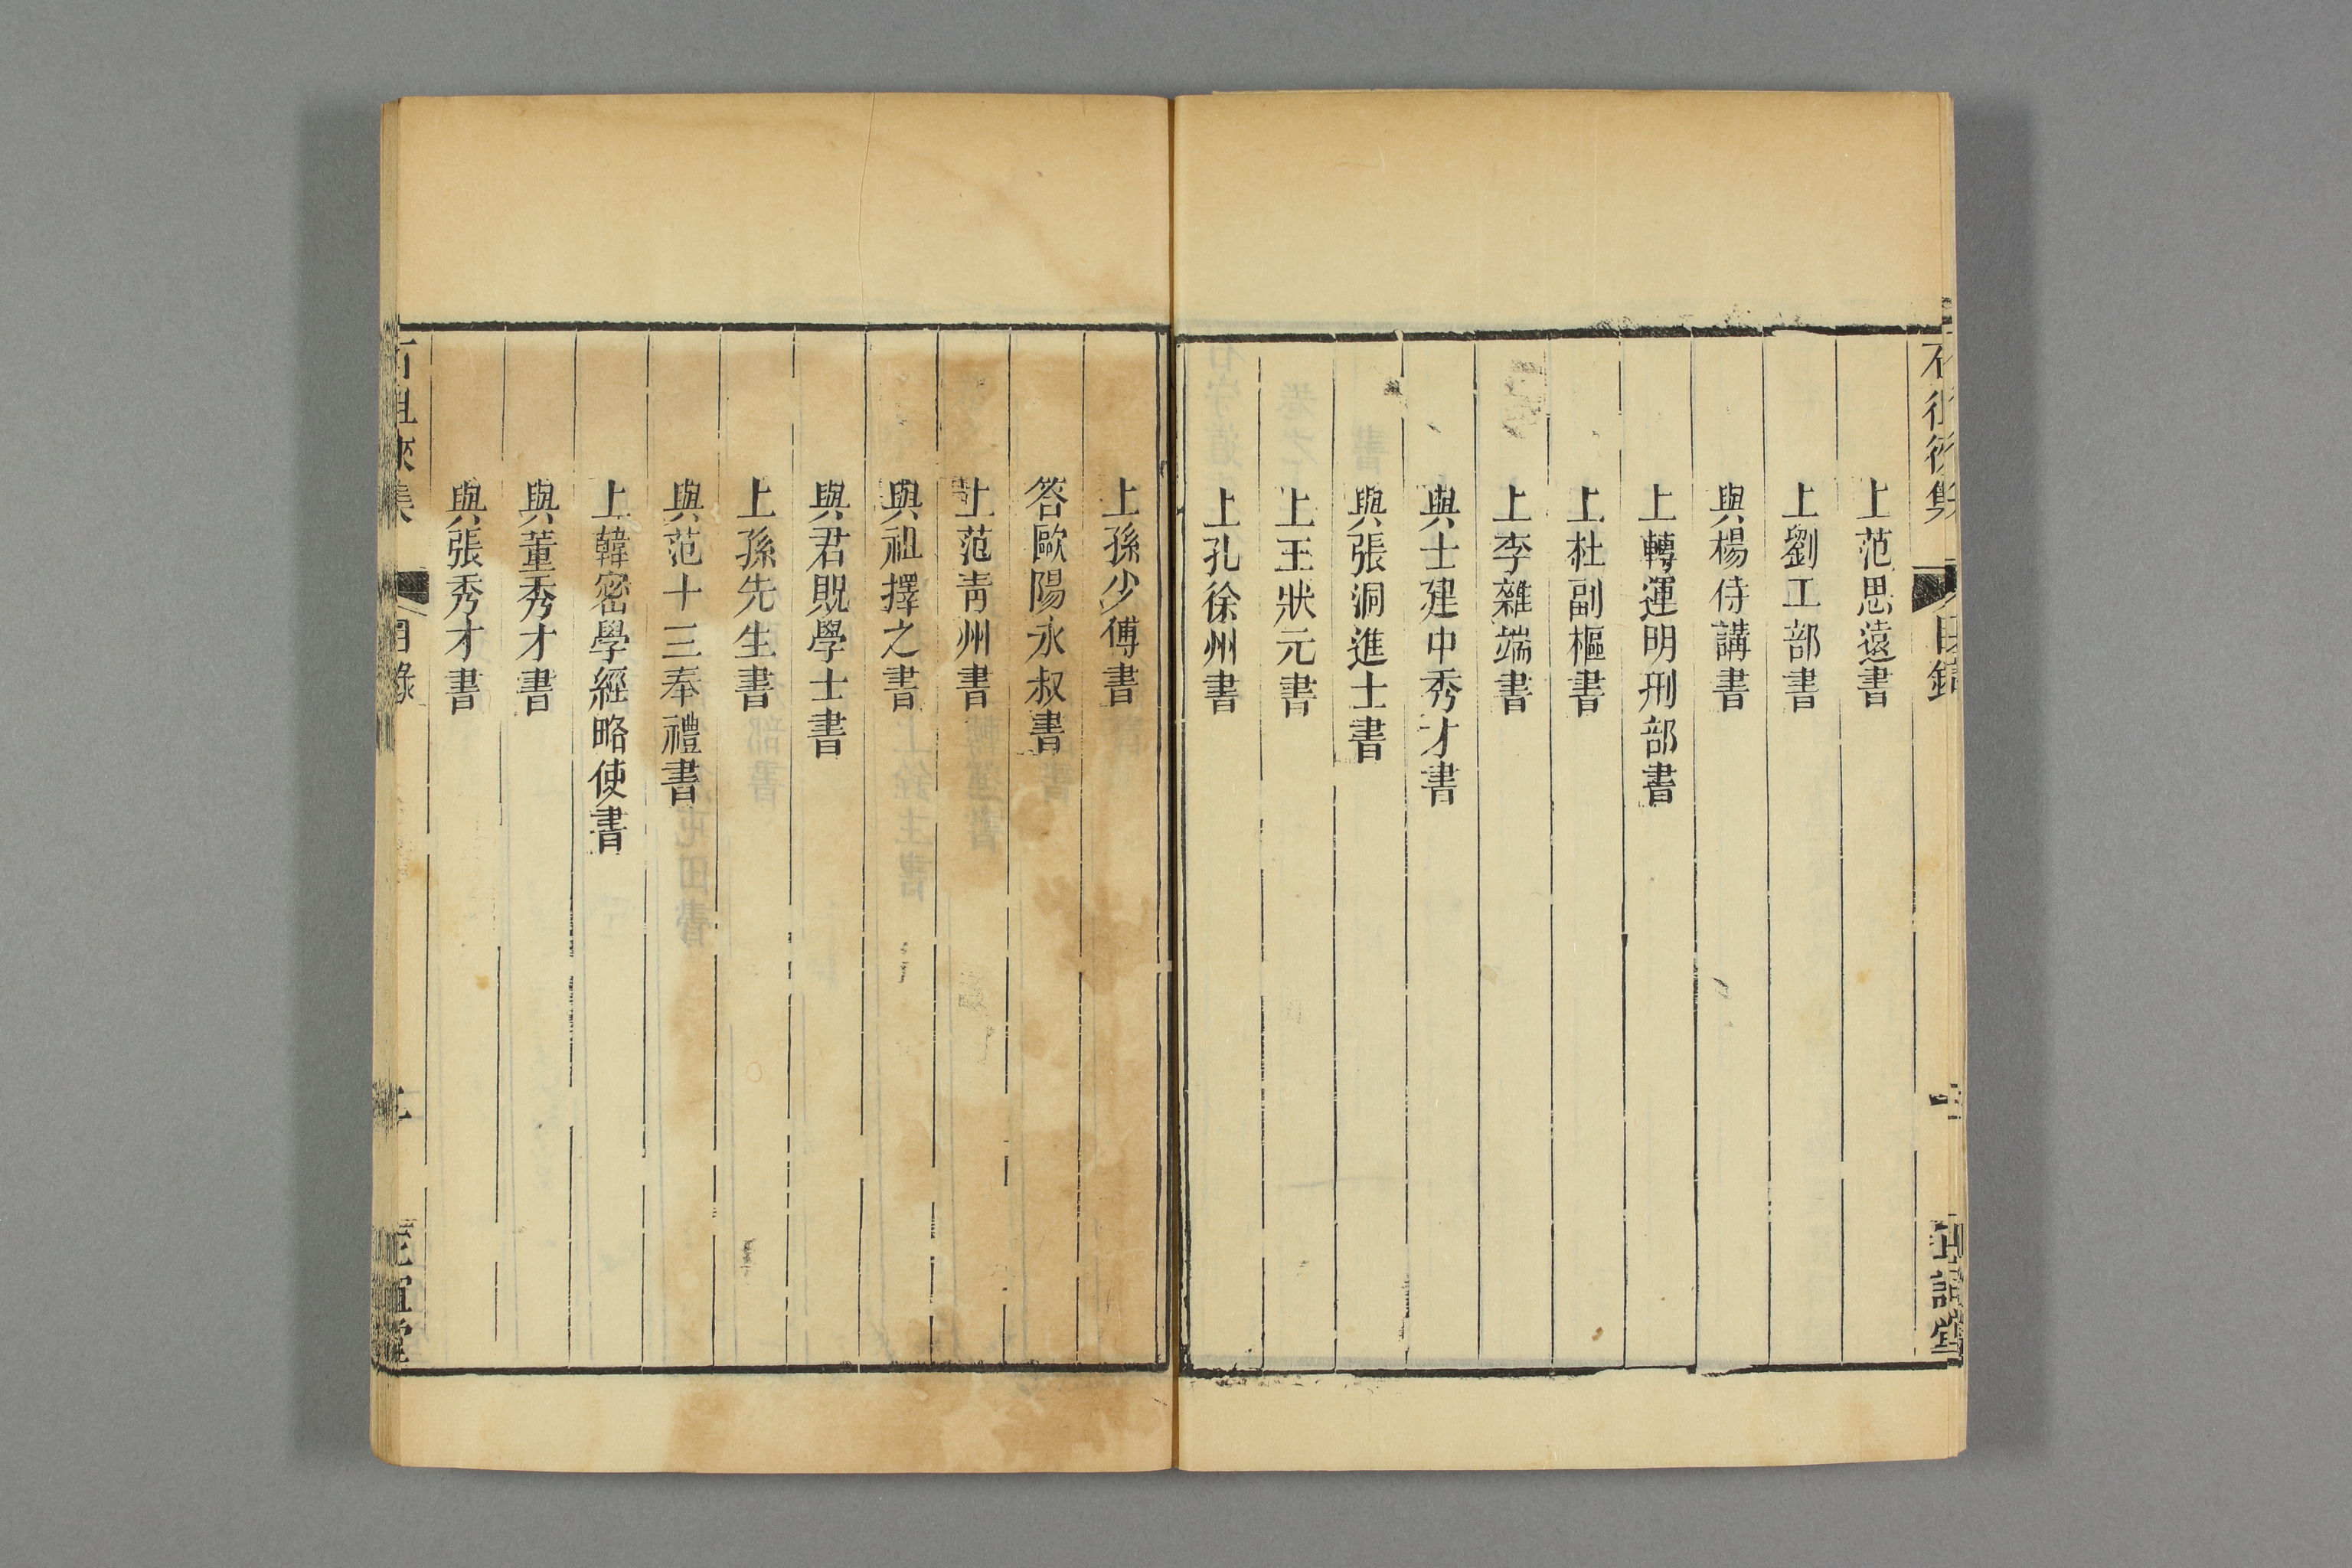 上范思遠書
上劉工部書
與楊侍講書
上轉運明刑部書
上杜副樞書
上李雜端書
與士建中秀才書
與張洞進士書
上王狀元書
上孔徐州書
上孫少傅書
答歐陽永叔書
上范青州書
與祖擇之書
與君貺學士書
上孫先生書
與范十三奉禮書
上韓密學經略使書
與董秀才書
與張秀才書
目錄